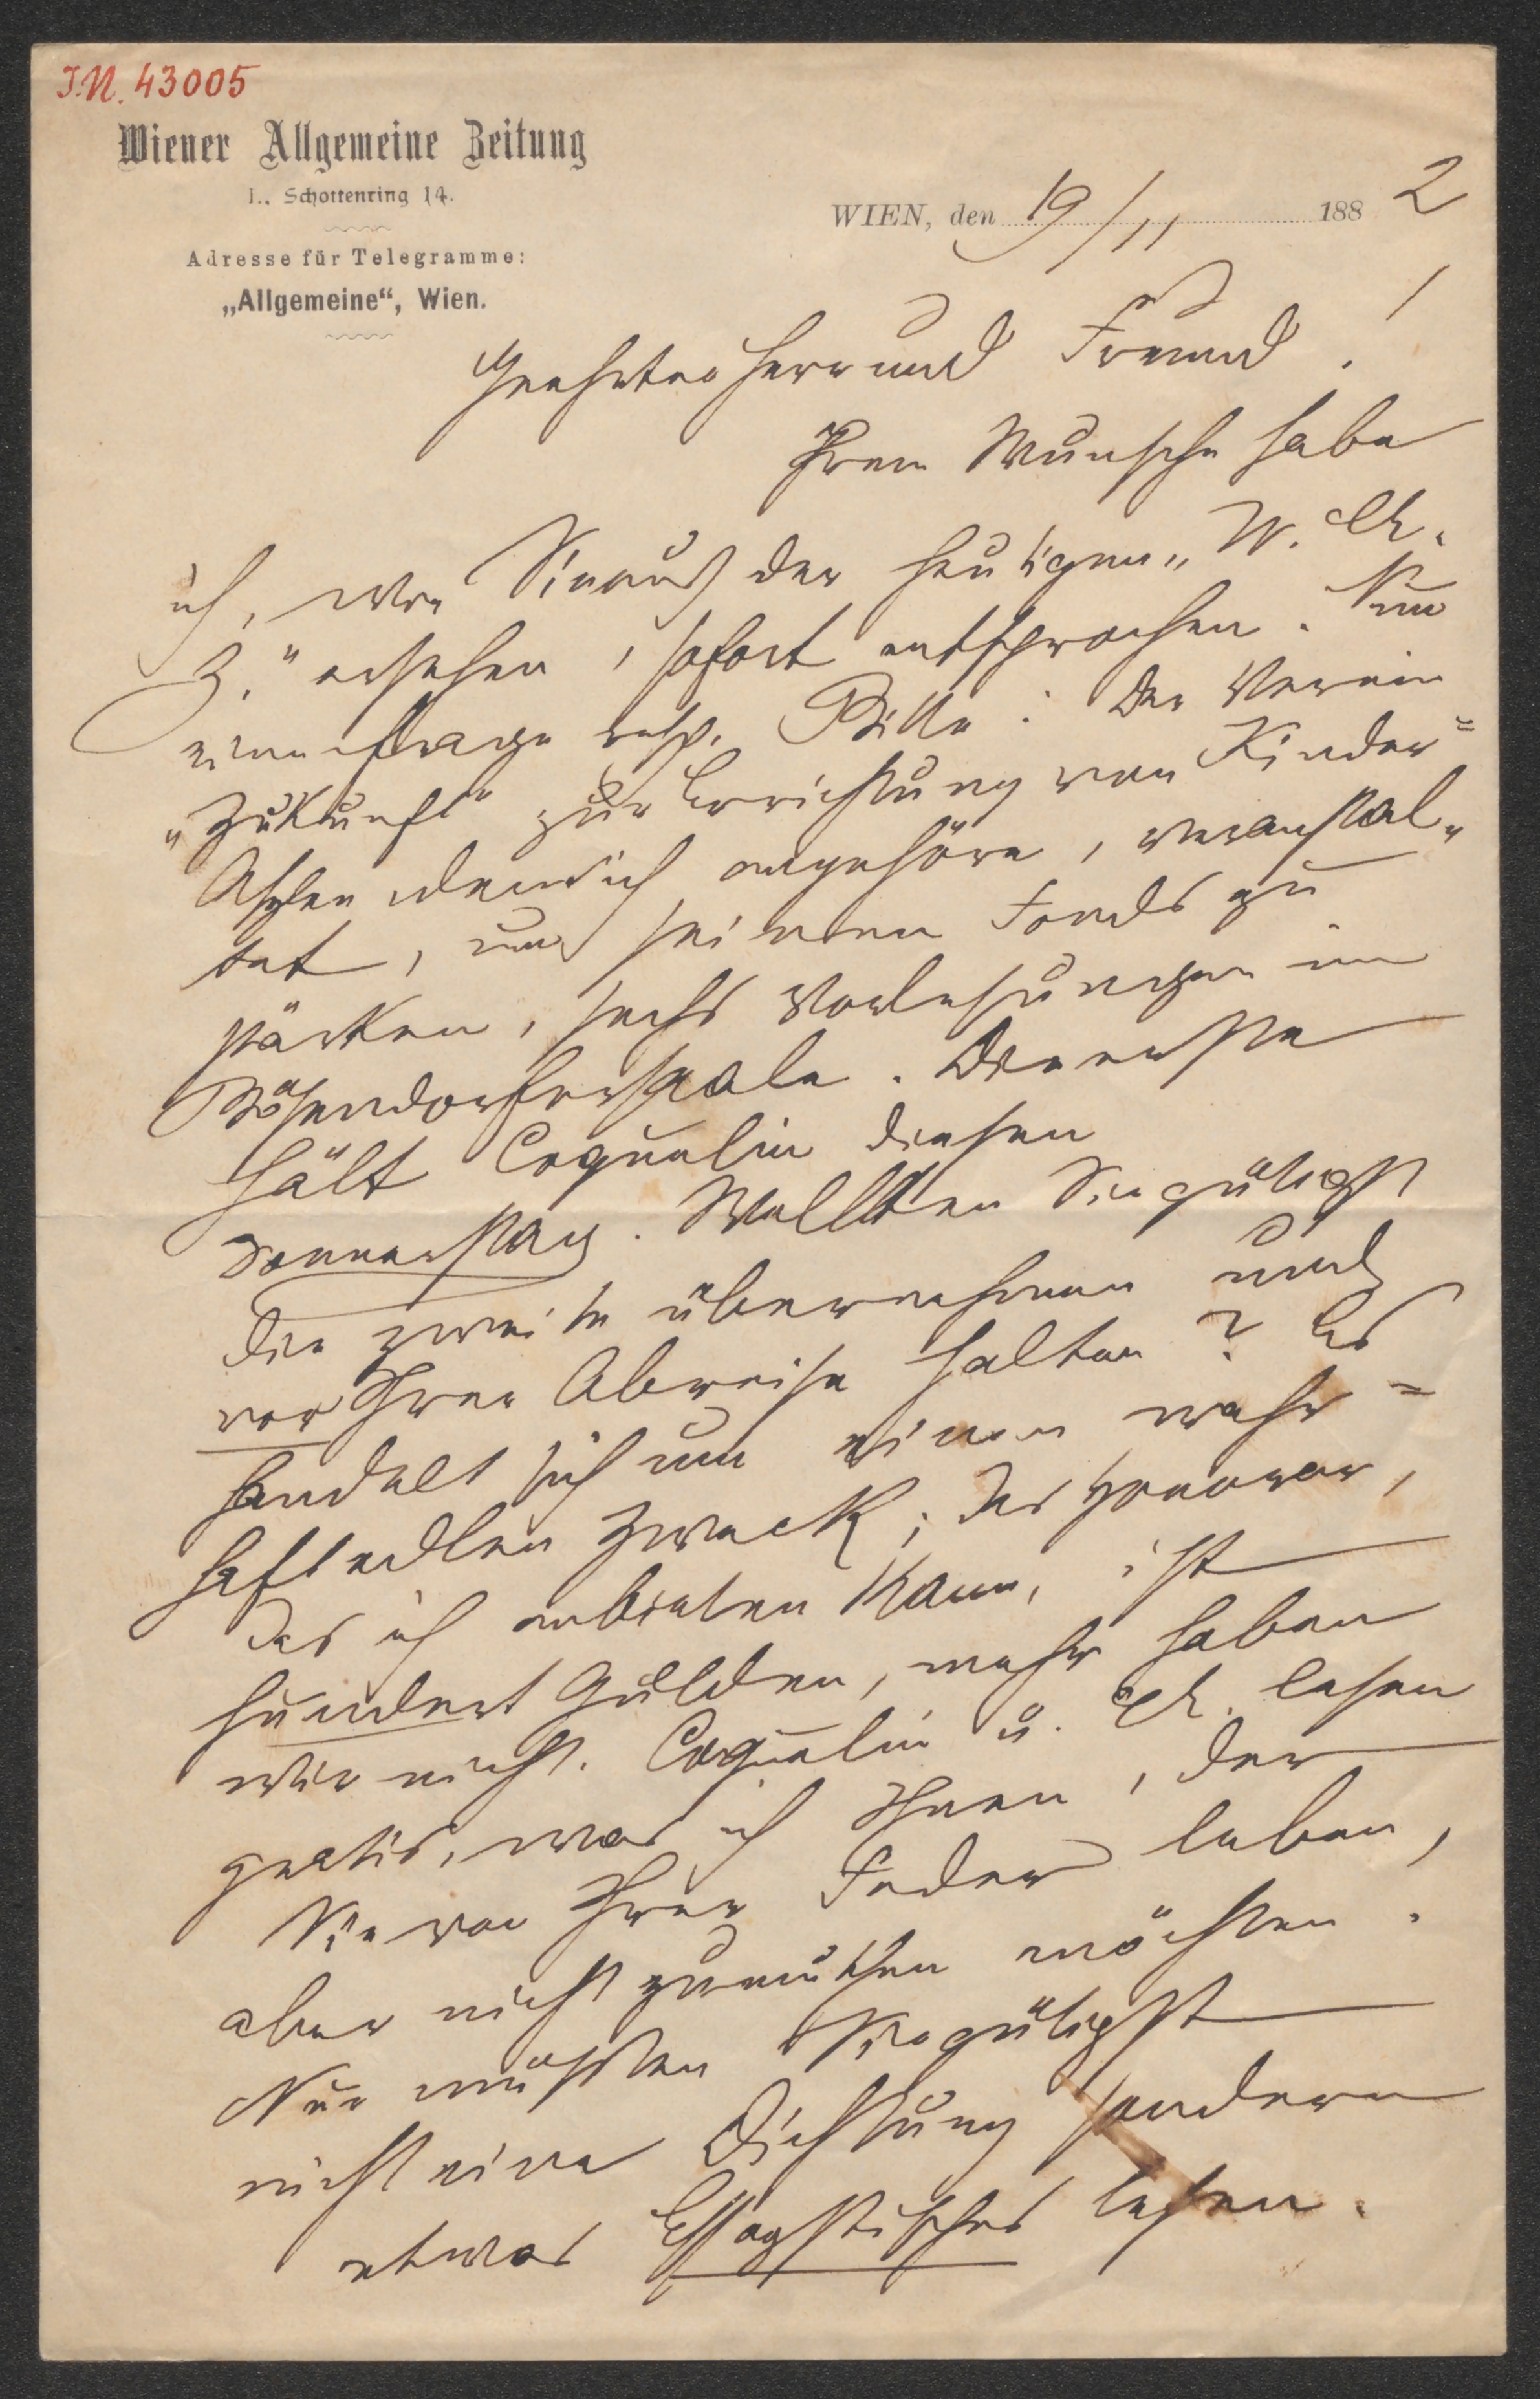 I.N. 43005
Wiener Allgemeine Zeitung
I., Schottenring 14.
Adresse für Telegramme:
„Allgemeine“, Wien.
WIEN, den 19/11 1882
Geehrter Herr und Freund!
Ihrem Wunsche habe
ich, wie Sie aus der heutigen „W. A.
Z.“ ersehen, sofort entsprochen. Nun
eine Frage resp. Bitte: Der Verein
„Zukunft“ zur Errichtung von Kinder=
Asylen, dem ich angehöre, veranstal=
tet, um seinen Fonds zu
stärken, sechs Vorlesungen im
Bösendorfersaale. Die erste
hält Coquelin diesen
Donnerstag. Wollten Sie gütigst
die zweite übernehmen und
vor Ihrer Abreise halten? Es
handelt sich um einen wahr=
haft edlen Zweck; das Honorar,
das ich anbieten kann, ist
hundert Gulden, mehr haben
wir nicht. Coquelin u. A. lesen
gratis, was ich Ihnen, der
Sie von Ihrer Feder leben,
aber nicht zumuthen möchten.
Nur müßten Sie gütigst
nicht eine Dichtung sondern
etwas Essayistisches lesen.